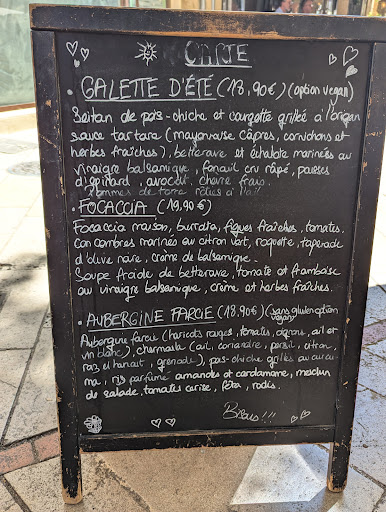 CARTE
· GALETTE D'ÉTÉ (18,90€) (option vegan)
Seitan de pois-chiche et courgette grillée à l'origan
sauce tartare (mayonnaise câpres, cornichons et
herbes fraîches), betterave et échalote marinées au
vinaigre balsamique, fenouil cru râpé, pousses
d'épinard, avocat, chèvre frais.
Pommes de terre rôties à l'ail
· FOCACCIA (19,90€)
Focaccia maison, burrata, figues fraîches, tomates,
concombres marinés au citron vert, roquette, tapenade
d'olive noire, crème de balsamique.
Soupe froide de betterave, tomate et framboise
au vinaigre balsamique, crème et herbes fraîches.
· AUBERGINE FARCIE (18,90€) (sans gluten option vegan)
Aubergine farcie (haricots rouges, tomates, oignons, ail et
vin blanc), chermoula (ail, coriandre, persil, citron,
raz el hanout, grenade), pois-chiche grillés au curcu
ma, riz parfumé amandes et cardamome, mesclun
de salade, tomates cerise, feta, radis.
Bisous!!!